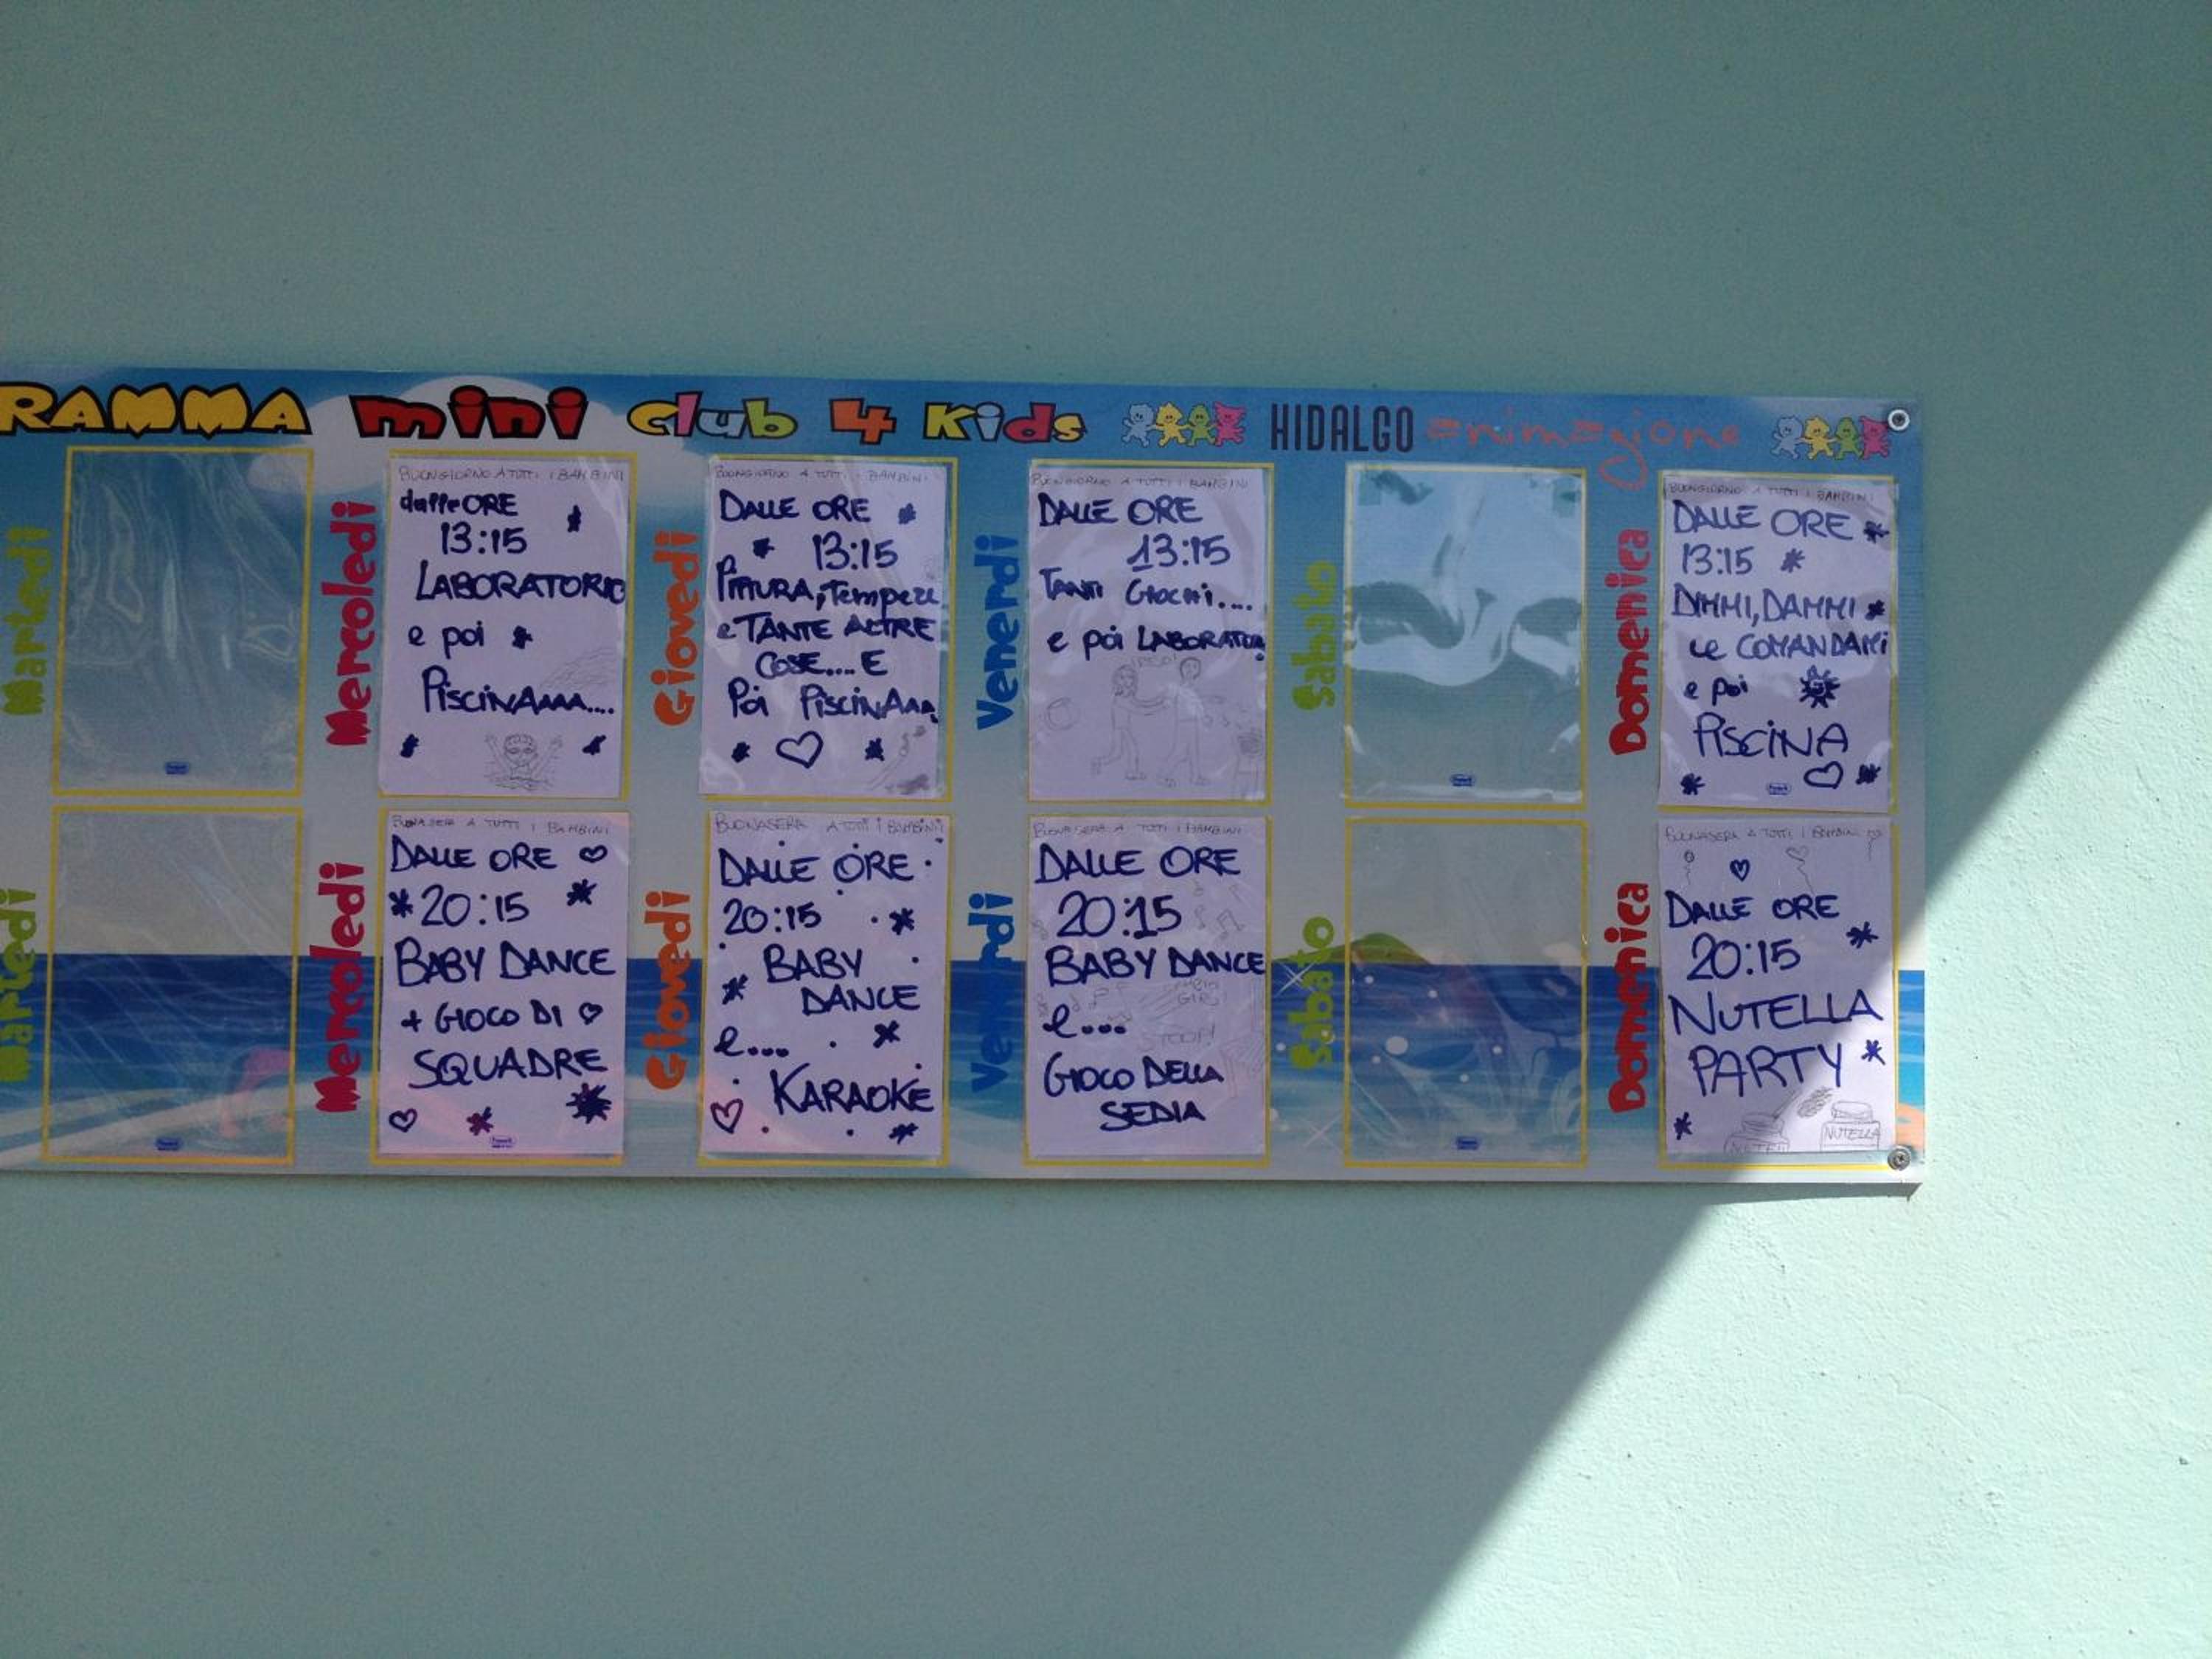 RAMMA mini club 4 Kids HIDALGO animazione
Martedì
Mercoledì
BUONGIORNO A TUTTI I BAMBINI
dalle ORE
13:15
LABORATORIO
e poi
PISCINAAAA....
Giovedì
BUONGIORNO A TUTTI I BAMBINI
DALLE ORE
13:15
PITTURA, Tempere
e TANTE ALTRE
COSE.... E
Poi PISCINAAA
Venerdì
BUONGIORNO A TUTTI I BAMBINI
DALLE ORE
13:15
TANTI GIOCHI....
e poi LABORATOR
Sabato
Domenica
BUONGIORNO A TUTTI I BAMBINI
DALLE ORE
13:15
DIMMI, DAMMI
Le COMANDAMI
e poi
PISCINA
Martedì
Mercoledì
BUONASERA A TUTTI I BAMBINI
DALLE ORE
20:15
BABY DANCE
+ GIOCO DI
SQUADRE
Giovedì
BUONASERA A TUTTI I BAMBINI
DALLE ORE
20:15
BABY
DANCE
e...
KARAOKE
Venerdì
BUONASERA A TUTTI I BAMBINI
DALLE ORE
20:15
BABY DANCE
e...
STOP!
GIOCO DELLA
SEDIA
Sabato
Domenica
BUONASERA A TUTTI I BAMBINI
DALLE ORE
20:15
NUTELLA
PARTY
NUTELLA